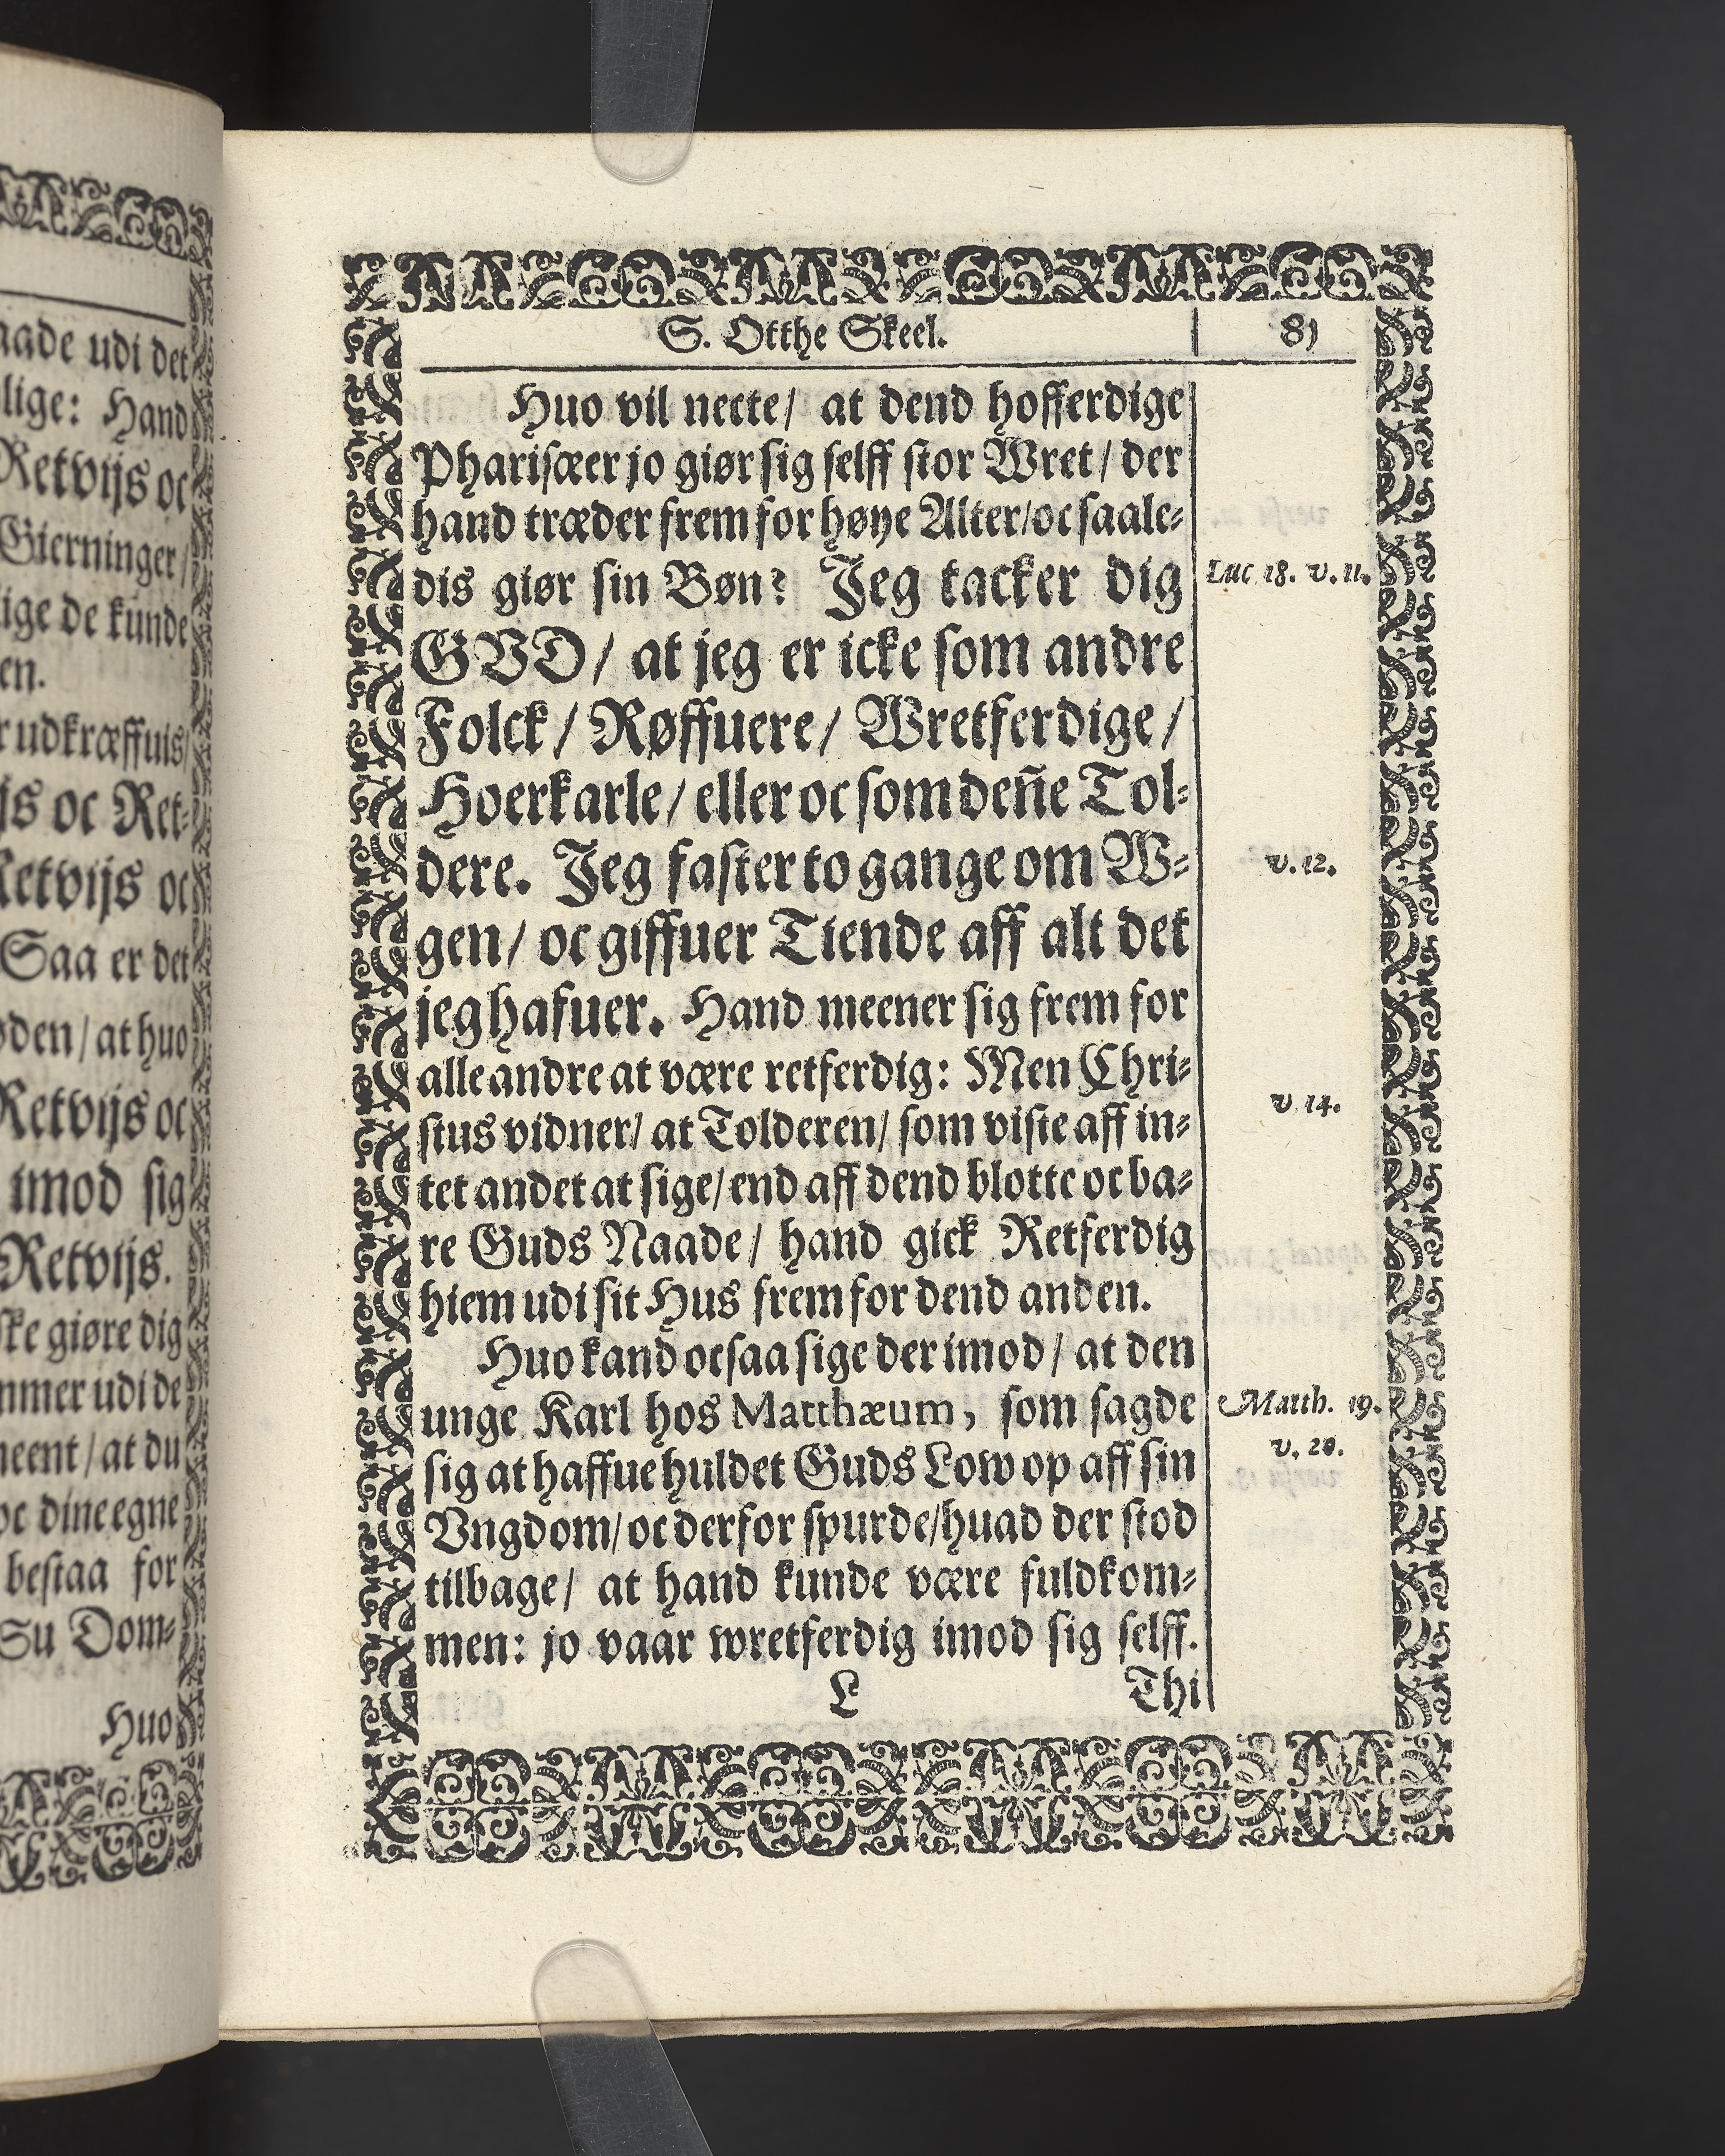 aade udi det
lige: Hand
Retvijs oc
Gierninger/
lige de kunde
en.
r udkræffuis/
js oc Ret-
Retvijs oc
Saa er det
oden/ at huo
Retvijs oc
imod sig
Retvijs.
ske giøre dig
mmer udi de
meent/ at du
oc dine egne
bestaa for
Su Dom-
Huo
S. Otthe Skeel. 81
Huo vil necte/ at dend hofferdige
Pharisæer jo giør sig selff stor Wret/ der
hand træder frem for høye Alter/ oc saale-
dis giør sin Bøn? Jeg tacker dig Luc 18. v. 11.
GVD/ at jeg er icke som andre
Folck/ Røffuere/ Wretferdige/
Hoerkarle/ eller oc som deñe Tol-
dere. Jeg faster to gange om W- v. 12.
gen/ oc giffuer Tiende aff alt det
jeg hafuer. Hand meener sig frem for
alle andre at være retferdig: Men Chri- v 14.
stus vidner/ at Tolderen/ som viste aff in-
tet andet at sige/ end aff dend blotte oc ba-
re Guds Naade/ hand gick Retferdig
hiem udi sit Hus frem for dend anden.
Huo kand ocsaa sige der imod/ at den
unge Karl hos Matthæum, som sagde Matth. 19.
sig at haffue huldet Guds Low op aff sin v. 20.
Vngdom/ oc derfor spurde/ huad der stod
tilbage/ at hand kunde være fuldkom-
men: jo vaar wretferdig imod sig selff.
L Thi